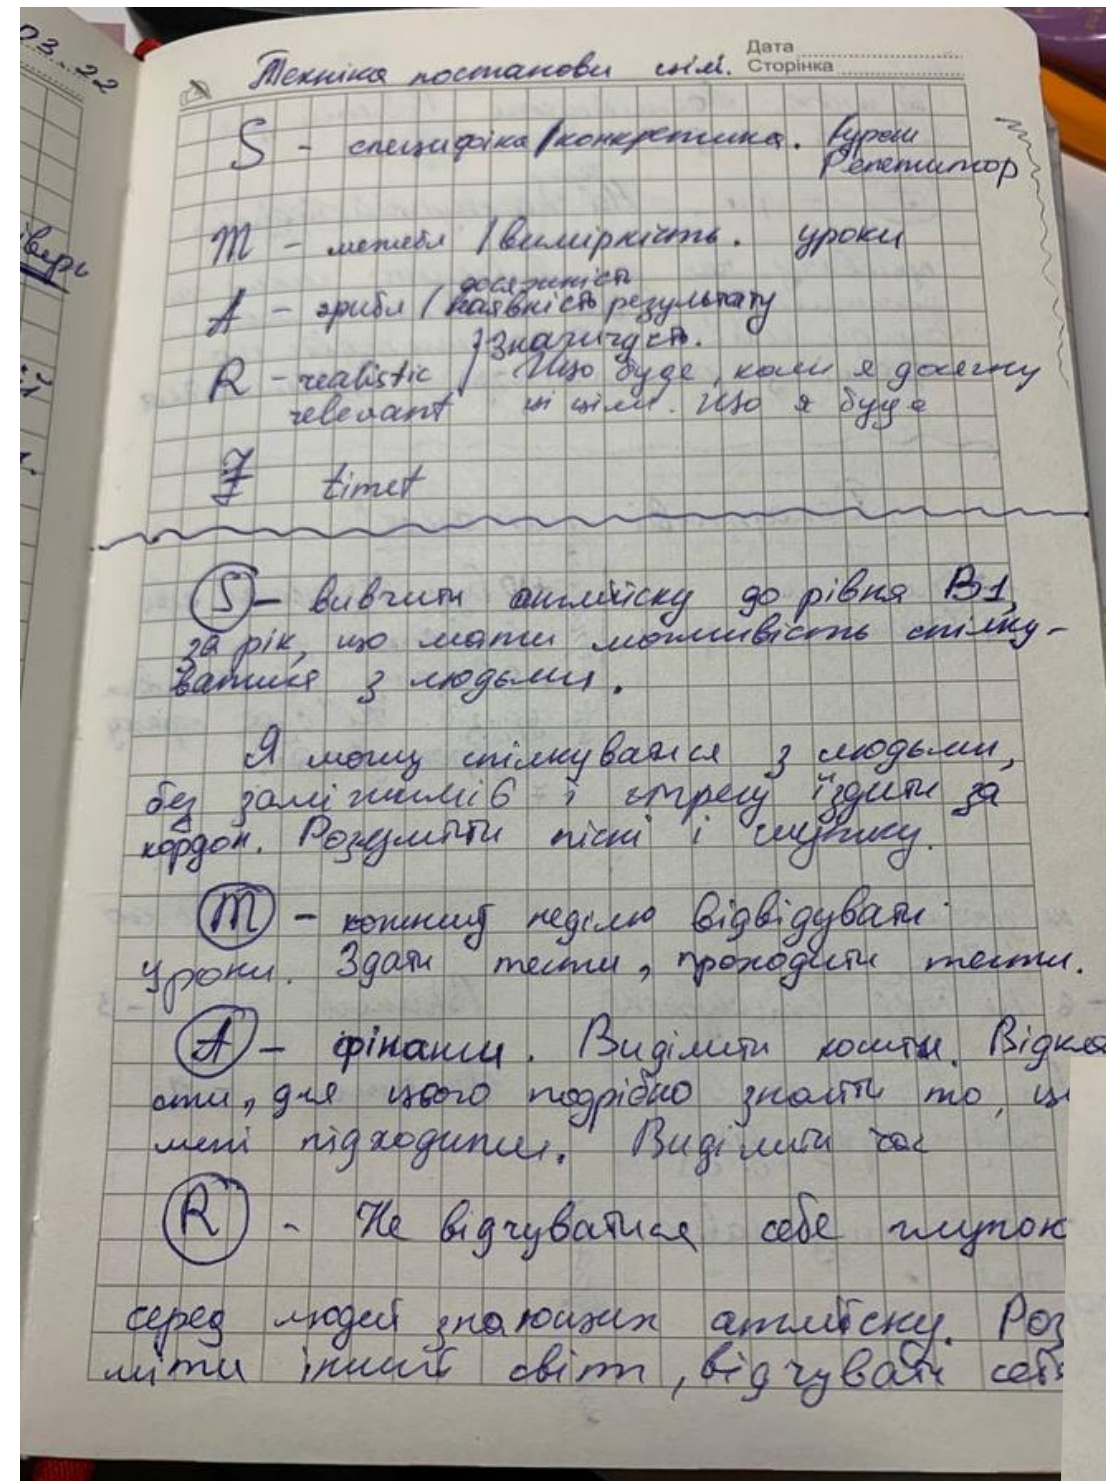 03.22
Дата
Техніка постанови цілі. Сторінка
S - специфіка / конкретика. Курси
Репетитор
M - межебл / вимірність. уроки
досяжність
A - эчибл / наявність результату
} значущість.
R - realistic / - Що буде, коли я досягну
relevant ці цілі. Що я буде
T timet
S - вивчити англійску до рівня B1,
за рік, що мати можливість спілку-
ватися з людьми.
Я можу спілкуватися з людьми,
без заліжжилів і стресу їздити за
кордон. Розуміти пісні і
M - кожний неділю відвідувати
уроки. Здати тести, проходити тести.
A - фінанси. Виділити кошти. Відкла
сти, для цього подрібно знайти то, щ
мені підходити. Виділити час
R - Не відчуватися себе глупою
серед людей знающих англійску. Роз
міти інший світ, відчувати себ